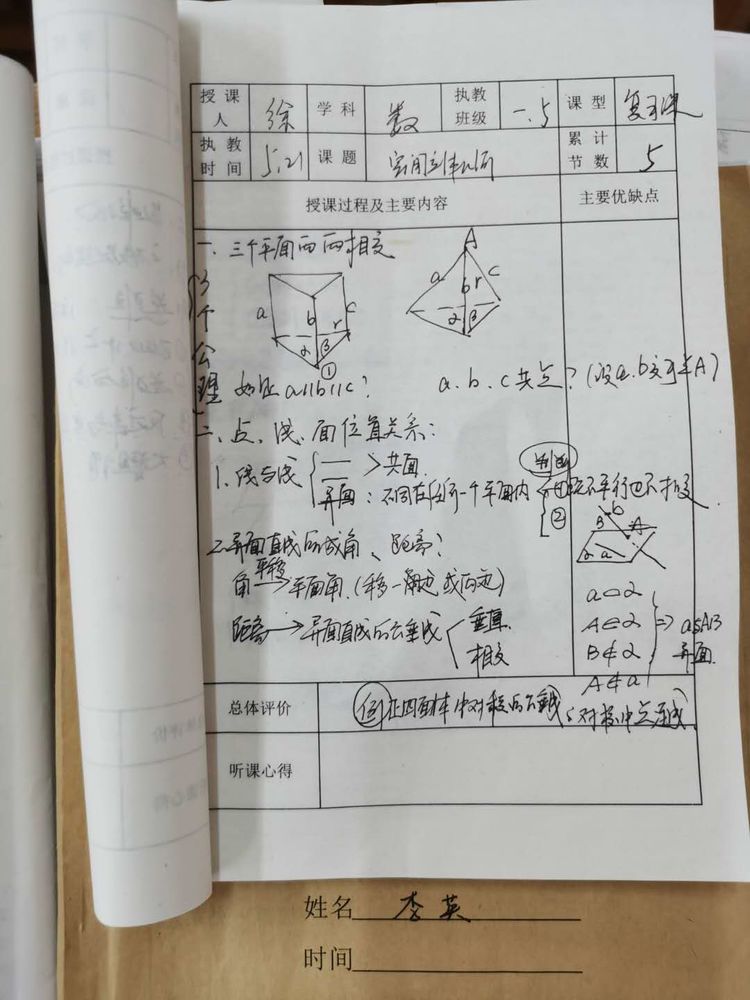 授课人 徐 学科 数 执教班级 一.5 课型 复习课
执教时间 5.21 课题 空间立体几何 累计节数 5
授课过程及主要内容 主要优缺点
一、三个平面两两相交
(3个公理)
a b c r α β ①
A a b r c α β
如证a∥b∥c? a.b.c共点?(设a.b交于点A)
二、点、线、面位置关系:
1.线与线 共面
异面:不同在任何一个平面内 判断 ①既不平行也不相交
②
b B A α a
2.异面直线所成角、距离?
角 平移→ 平面角.(移一条边或两边)
距离→异面直线的公垂线 垂直
相交
a⊂α
A∈α
B∉α
A∉a
⇒ a与AB异面
总体评价 例 正四面体中对棱的公垂线 对棱中点连线
听课心得
姓名 李英
时间